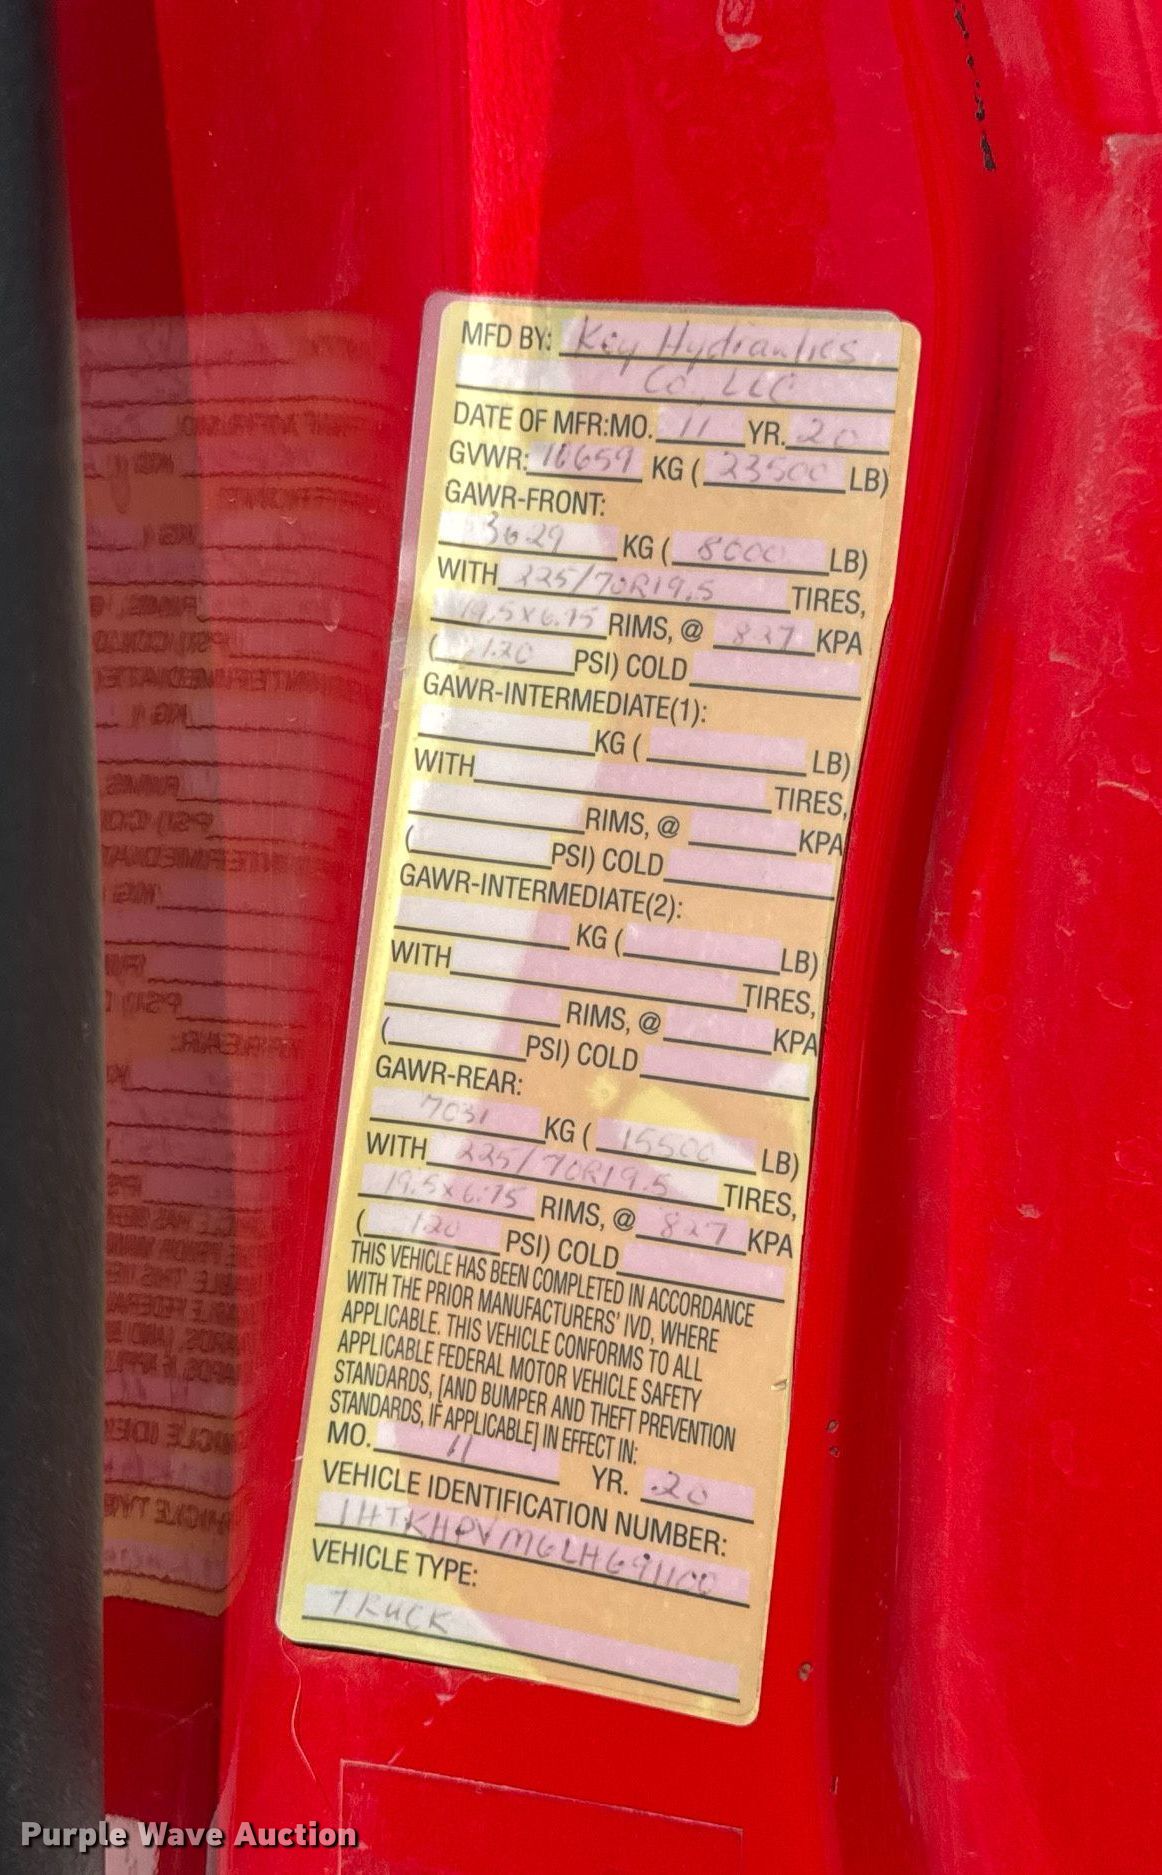 MFD BY: Key Hydraulics
Co, LLC
DATE OF MFR:MO. 11 YR. 20
GVWR: 10659 KG ( 23500 LB)
GAWR-FRONT:
3629 KG ( 8000 LB)
WITH 225/70R19.5 TIRES,
19.5x6.75 RIMS, @ 827 KPA
( 120 PSI) COLD
GAWR-INTERMEDIATE(1):
KG ( LB)
WITH TIRES,
RIMS, @ KPA
( PSI) COLD
GAWR-INTERMEDIATE(2):
KG ( LB)
WITH TIRES,
RIMS, @ KPA
( PSI) COLD
GAWR-REAR:
7031 KG ( 15500 LB)
WITH 225/70R19.5 TIRES,
19.5x6.75 RIMS, @ 827 KPA
( 120 PSI) COLD
THIS VEHICLE HAS BEEN COMPLETED IN ACCORDANCE
WITH THE PRIOR MANUFACTURERS' IVD, WHERE
APPLICABLE. THIS VEHICLE CONFORMS TO ALL
APPLICABLE FEDERAL MOTOR VEHICLE SAFETY
STANDARDS, [AND BUMPER AND THEFT PREVENTION
STANDARDS, IF APPLICABLE] IN EFFECT IN:
MO. 11 YR. 20
VEHICLE IDENTIFICATION NUMBER:
VEHICLE TYPE:
TRUCK
Purple Wave Auction